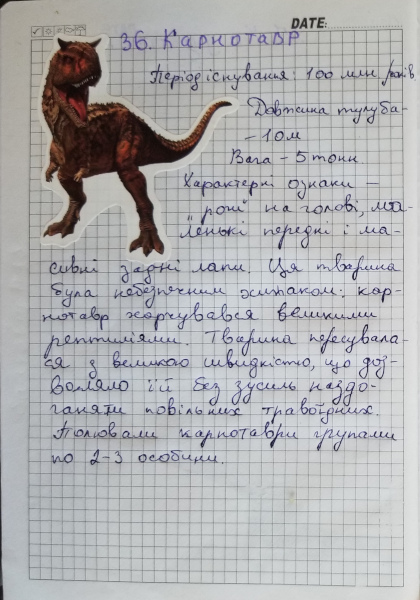 DATE:
36. Карнотавр
Період існування: 100 млн. років
Довжина тулуба-
- 10м
Вага - 5 тонн
Характерні ознаки -
"роги" на голові, ма-
ленькі передні і ма-
сивні задні лапи. Ця тварина
була небезпечним хижаком: кар-
нотавр харчувався великими
рептиліями. Тварина пересувала-
ся з великою швидкістю, що доз-
воляло їй без зусиль наздо-
ганяти повільних травоїдних.
Полювали карнотаври групами
по 2-3 особини.